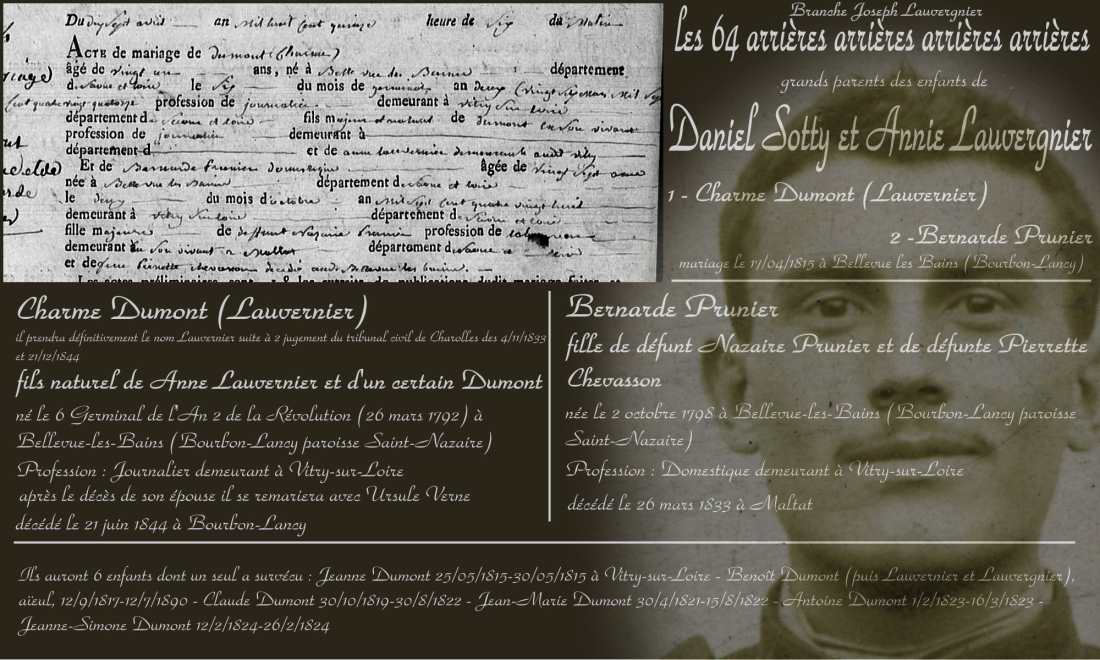 Du dix Sept avril an Mil huit Cent quinze heure de Six du Matin
ACTE de mariage de Dumont (Charme)
âgé de Vingt un ans, né à Belle vue les Bains département
d. Saone et Loire le Six du mois de germinal an deux (Vingt Six Mars Mil Sept
Cent quatre vingt quatorze profession de journalier demeurant à Vitry Sur Loire
département d. Saone et Loire fils majeur et naturel de Dumont en Son vivant
profession de journalier demeurant à
département d et de anne Lauvernier demeurante audit Vitry
Et de Bernarde Prunier domestique âgée de Vingt Sept ans
née à Bellevue les Bains département d. Saone et Loire
le deux du mois d'octobre an Mil Sept Cent quatre vingt huit
demeurant à Vitry Sur Loire département d. Saone et Loire
fille majeure de deffunt Nazaire Prunier profession de
demeurant en Son vivant à Maltat département d. Saone et Loire
et de feue Pierrette Chevasson décédée audit Bellevue les bains
Branche Joseph Lauvergnier
les 64 arrières arrières arrières arrières
grands parents des enfants de
Daniel Sotty et Annie Lauvergnier
1 - Charme Dumont (Lauvernier)
2 -Bernarde Prunier
mariage le 17/04/1815 à Bellevue les Bains (Bourbon-Lancy)
Charme Dumont (Lauvernier)
il prendra définitivement le nom Lauvernier suite à 2 jugement du tribunal civil de Charolles des 4/11/1833
et 21/12/1844
fils naturel de Anne Lauvernier et d'un certain Dumont
né le 6 Germinal de l'An 2 de la Révolution (26 mars 1792) à
Bellevue-les-Bains (Bourbon-Lancy paroisse Saint-Nazaire)
Profession : Journalier demeurant à Vitry-sur-Loire
après le décès de son épouse il se remariera avec Ursule Verne
décédé le 21 juin 1844 à Bourbon-Lancy
Bernarde Prunier
fille de défunt Nazaire Prunier et de défunte Pierrette
Chevasson
née le 2 octobre 1798 à Bellevue-les-Bains (Bourbon-Lancy paroisse
Saint-Nazaire)
Profession : Domestique demeurant à Vitry-sur-Loire
décédé le 26 mars 1833 à Maltat
Ils auront 6 enfants dont un seul a survécu : Jeanne Dumont 25/05/1815-30/05/1815 à Vitry-sur-Loire - Benoît Dumont (puis Lauvernier et Lauvergnier),
aïeul, 12/9/1817-12/7/1890 - Claude Dumont 30/10/1819-30/8/1822 - Jean-Marie Dumont 30/4/1821-15/8/1822 - Antoine Dumont 1/2/1823-16/3/1823 -
Jeanne-Simone Dumont 12/2/1824-26/2/1824